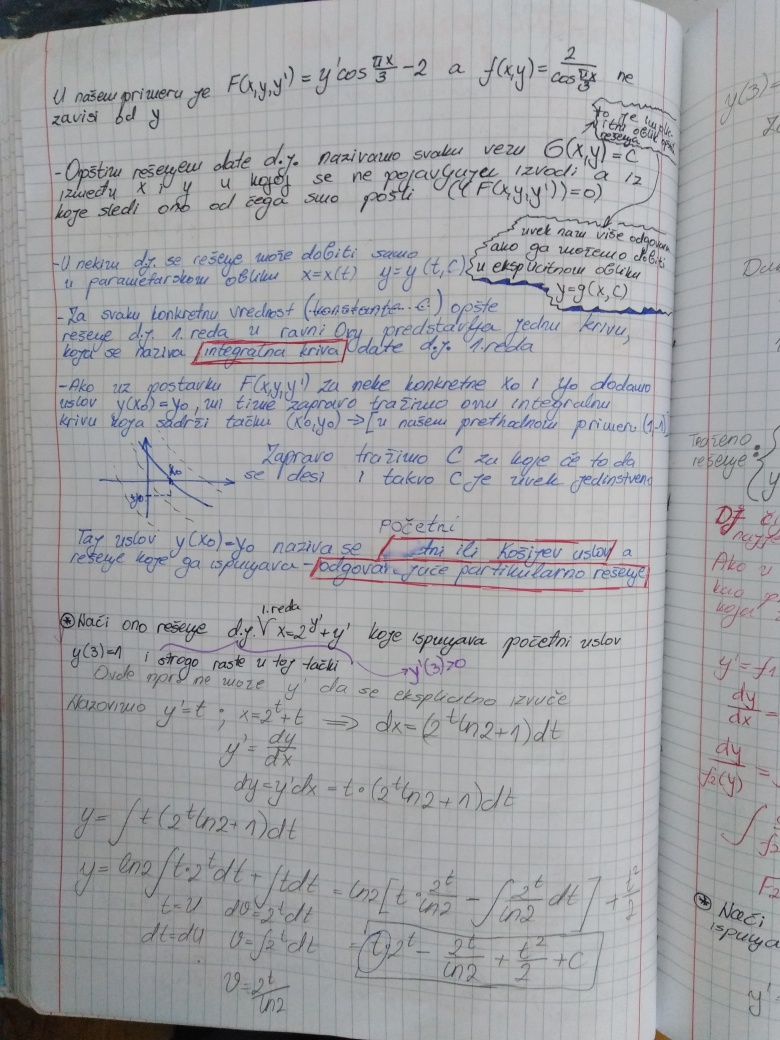 U našem primeru je F(x,y,y') = y'cos πx/3 - 2 a f(x,y) = 2/cos πx/3 ne
zavisi od y
to je implic
itni oblik
rešenja
-Opštim rešenjem date d.j. nazivamo svaku vezu G(x,y)=C
između x i y u kojoj se ne pojavljuju izvodi a iz
koje sledi ono od čega smo pošli ((F(x,y,y'))=0)
uvek nam više odgovara
ako ga možemo dobiti
u eksplicitnom obliku
y=g(x,C)
-U nekim d.j. se rešenje može dobiti samo
u parametarskom obliku x=x(t) y=y(t,C)
-Za svaku konkretnu vrednost (konstante C) opšte
rešenje d.j. 1.reda u ravni Oxy predstavlja jednu krivu,
koja se naziva integralna kriva date d.j. 1.reda
-Ako uz postavku F(x,y,y') za neke konkretne x0 i y0 dodamo
uslov y(x0)=y0, mi time zapravo tražimo onu integralnu
krivu koja sadrži tačku (x0,y0) → [u našem prethodnom primeru (1,-1)]
x0
y0
Zapravo tražimo C za koje će to da
se desi i takvo C je uvek jedinstveno
početni
Taj uslov y(x0)=y0 naziva se tni ili Košijev uslov a
rešenje koje ga ispunjava - odgovarajuće partikularno rešenje
1.reda
⊛ Naći ono rešenje d.j. √ x=2^y'+y' koje ispunjava početni uslov
y(3)=1 i strogo raste u toj tački → y'(3)>0
Ovde npr. ne može y' da se eksplicitno izvuče
Nazovimo y'=t ; x=2^t+t ⟹ dx=(2^t ln2+1)dt
y'= dy/dx
dy=y'dx = t·(2^t ln2+1)dt
y=∫t(2^t ln2+1)dt
y=ln2∫t·2^t dt+∫tdt = ln2[t·2^t/ln2 - ∫2^t/ln2 dt] + t²/2
t=u dv=2^t dt
dt=du v=∫2^t dt = t·2^t - 2^t/ln2 + t²/2 + C
v=2^t/ln2
y(3)=
Traženo
rešenje:
y
Dj
Ako u
kao
koja
y'=f1
dy/dx =
dy/f2(y) =
∫
F2
⊛ Naći
ispunja
y'=